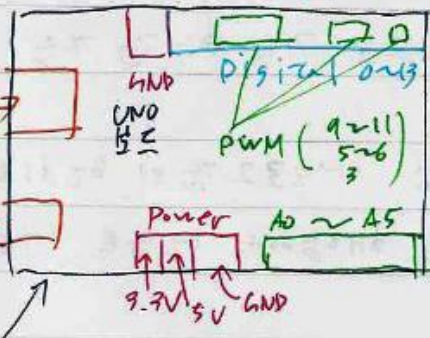 GND
Digital 0~13
UNO
보드
PWM ( 9~11
5~6
3 )
Power
A0 ~ A5
3.3V
5V
GND